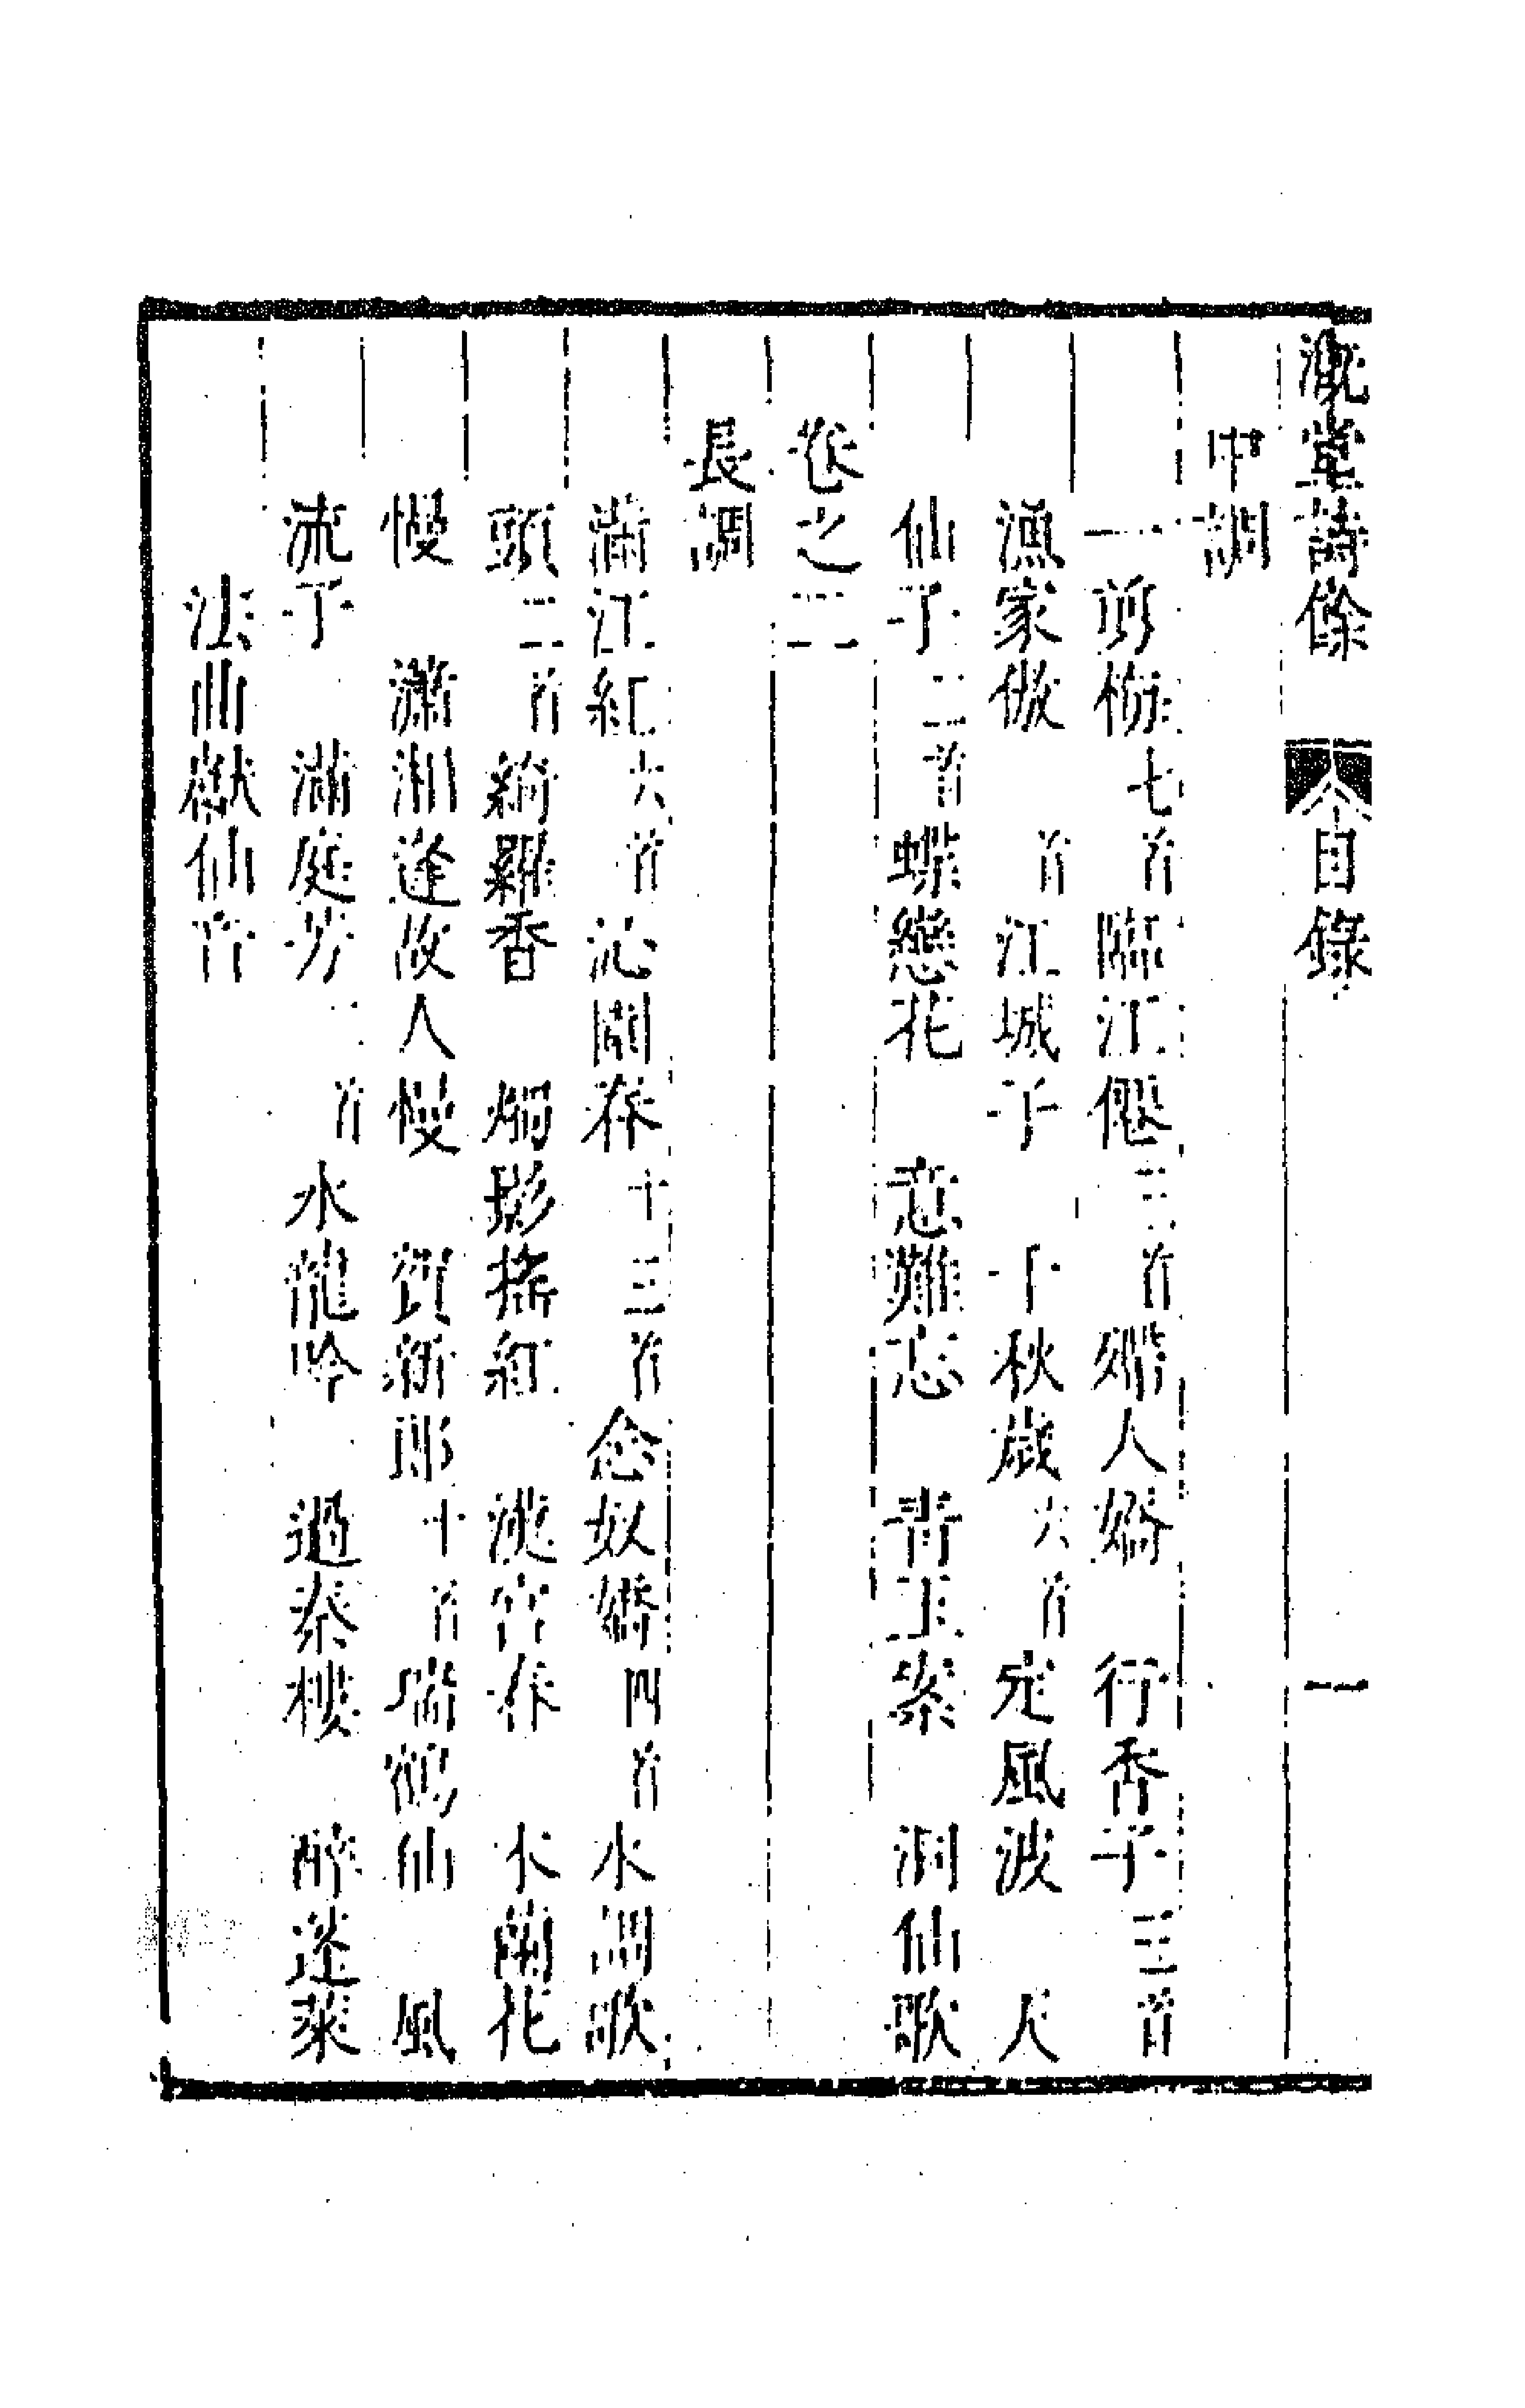 溉堂詩餘 目錄 一
中調
一剪梅七首 臨江僊三首 殢人嬌 行香子三首
漁家傲 首 江城子 千秋歲六首 定風波 天
仙子二首 蝶戀花 意難忘 青玉案 洞仙歌
卷之二
長調
滿江紅六首 沁園春十三首 念奴嬌四首 水調歌
頭二首 綺羅香 燭影搖紅 漢宮春 木蘭花
慢 瀟湘逢故人慢 賀新郎十首 瑞鶴仙 風
流子 滿庭芳二首 水龍吟 過秦樓 醉蓬萊
法曲獻仙音